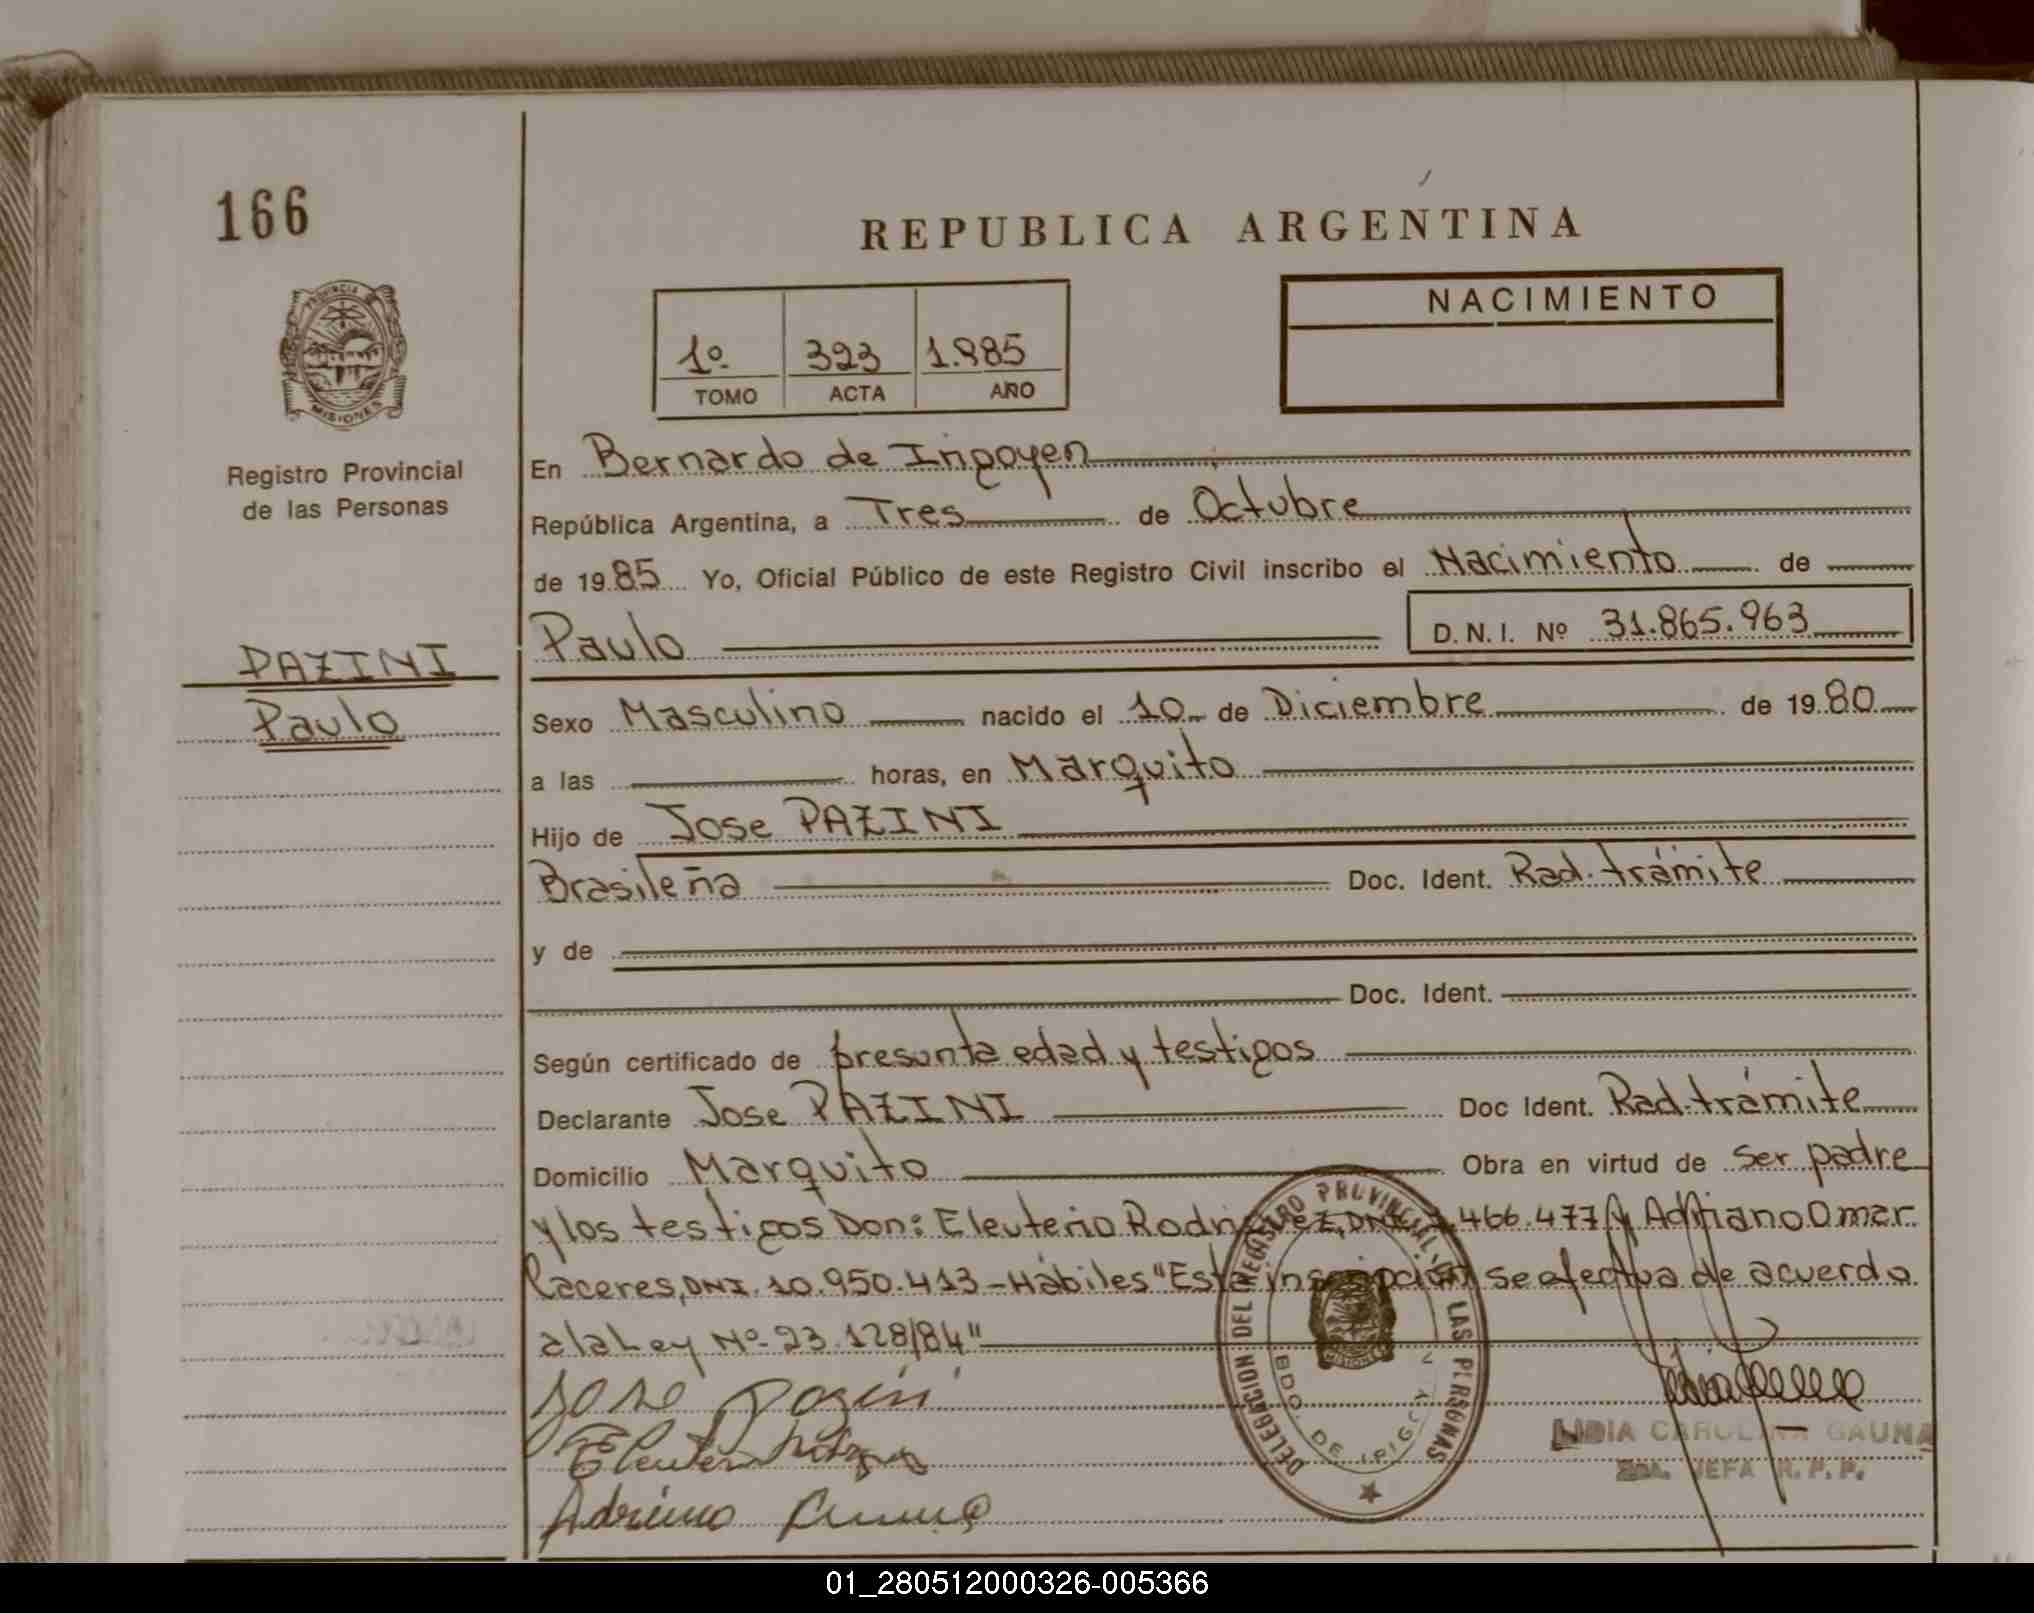 166
REPUBLICA ARGENTINA
PROVINCIA DE
MISIONES
Registro Provincial
de las Personas
1º 323 1.985
TOMO ACTA AÑO
NACIMIENTO
En Bernardo de Irigoyen
República Argentina, a Tres de Octubre
de 1985 Yo, Oficial Público de este Registro Civil inscribo el Nacimiento de
Paulo D.N.I. Nº 31.865.963
PAZINI
Paulo
Sexo Masculino nacido el 10 de Diciembre de 1980
a las horas, en Marquito
Hijo de Jose PAZINI
Brasileña Doc. Ident. Rad. trámite
y de
Doc. Ident.
Según certificado de presunta edad y testigos
Declarante Jose PAZINI Doc Ident. Rad. trámite
Domicilio Marquito Obra en virtud de ser padre
y los testigos Don: Eleuterio Rodriguez, DNI. 466.477 y Adriano Omar
Caceres, DNI. 10.950.413 - Hábiles "Esta inscripción se efectua de acuerdo
a la Ley Nº 23.128/84"
Jose Pazini
Adriano
DELEGACION DEL REGISTRO PROVINCIAL LAS PERSONAS
BDO. DE IRIGOY
MISIONES
LIDIA CAROLINA GAUNA
2da. JEFA R. P. P.
01_280512000326-005366